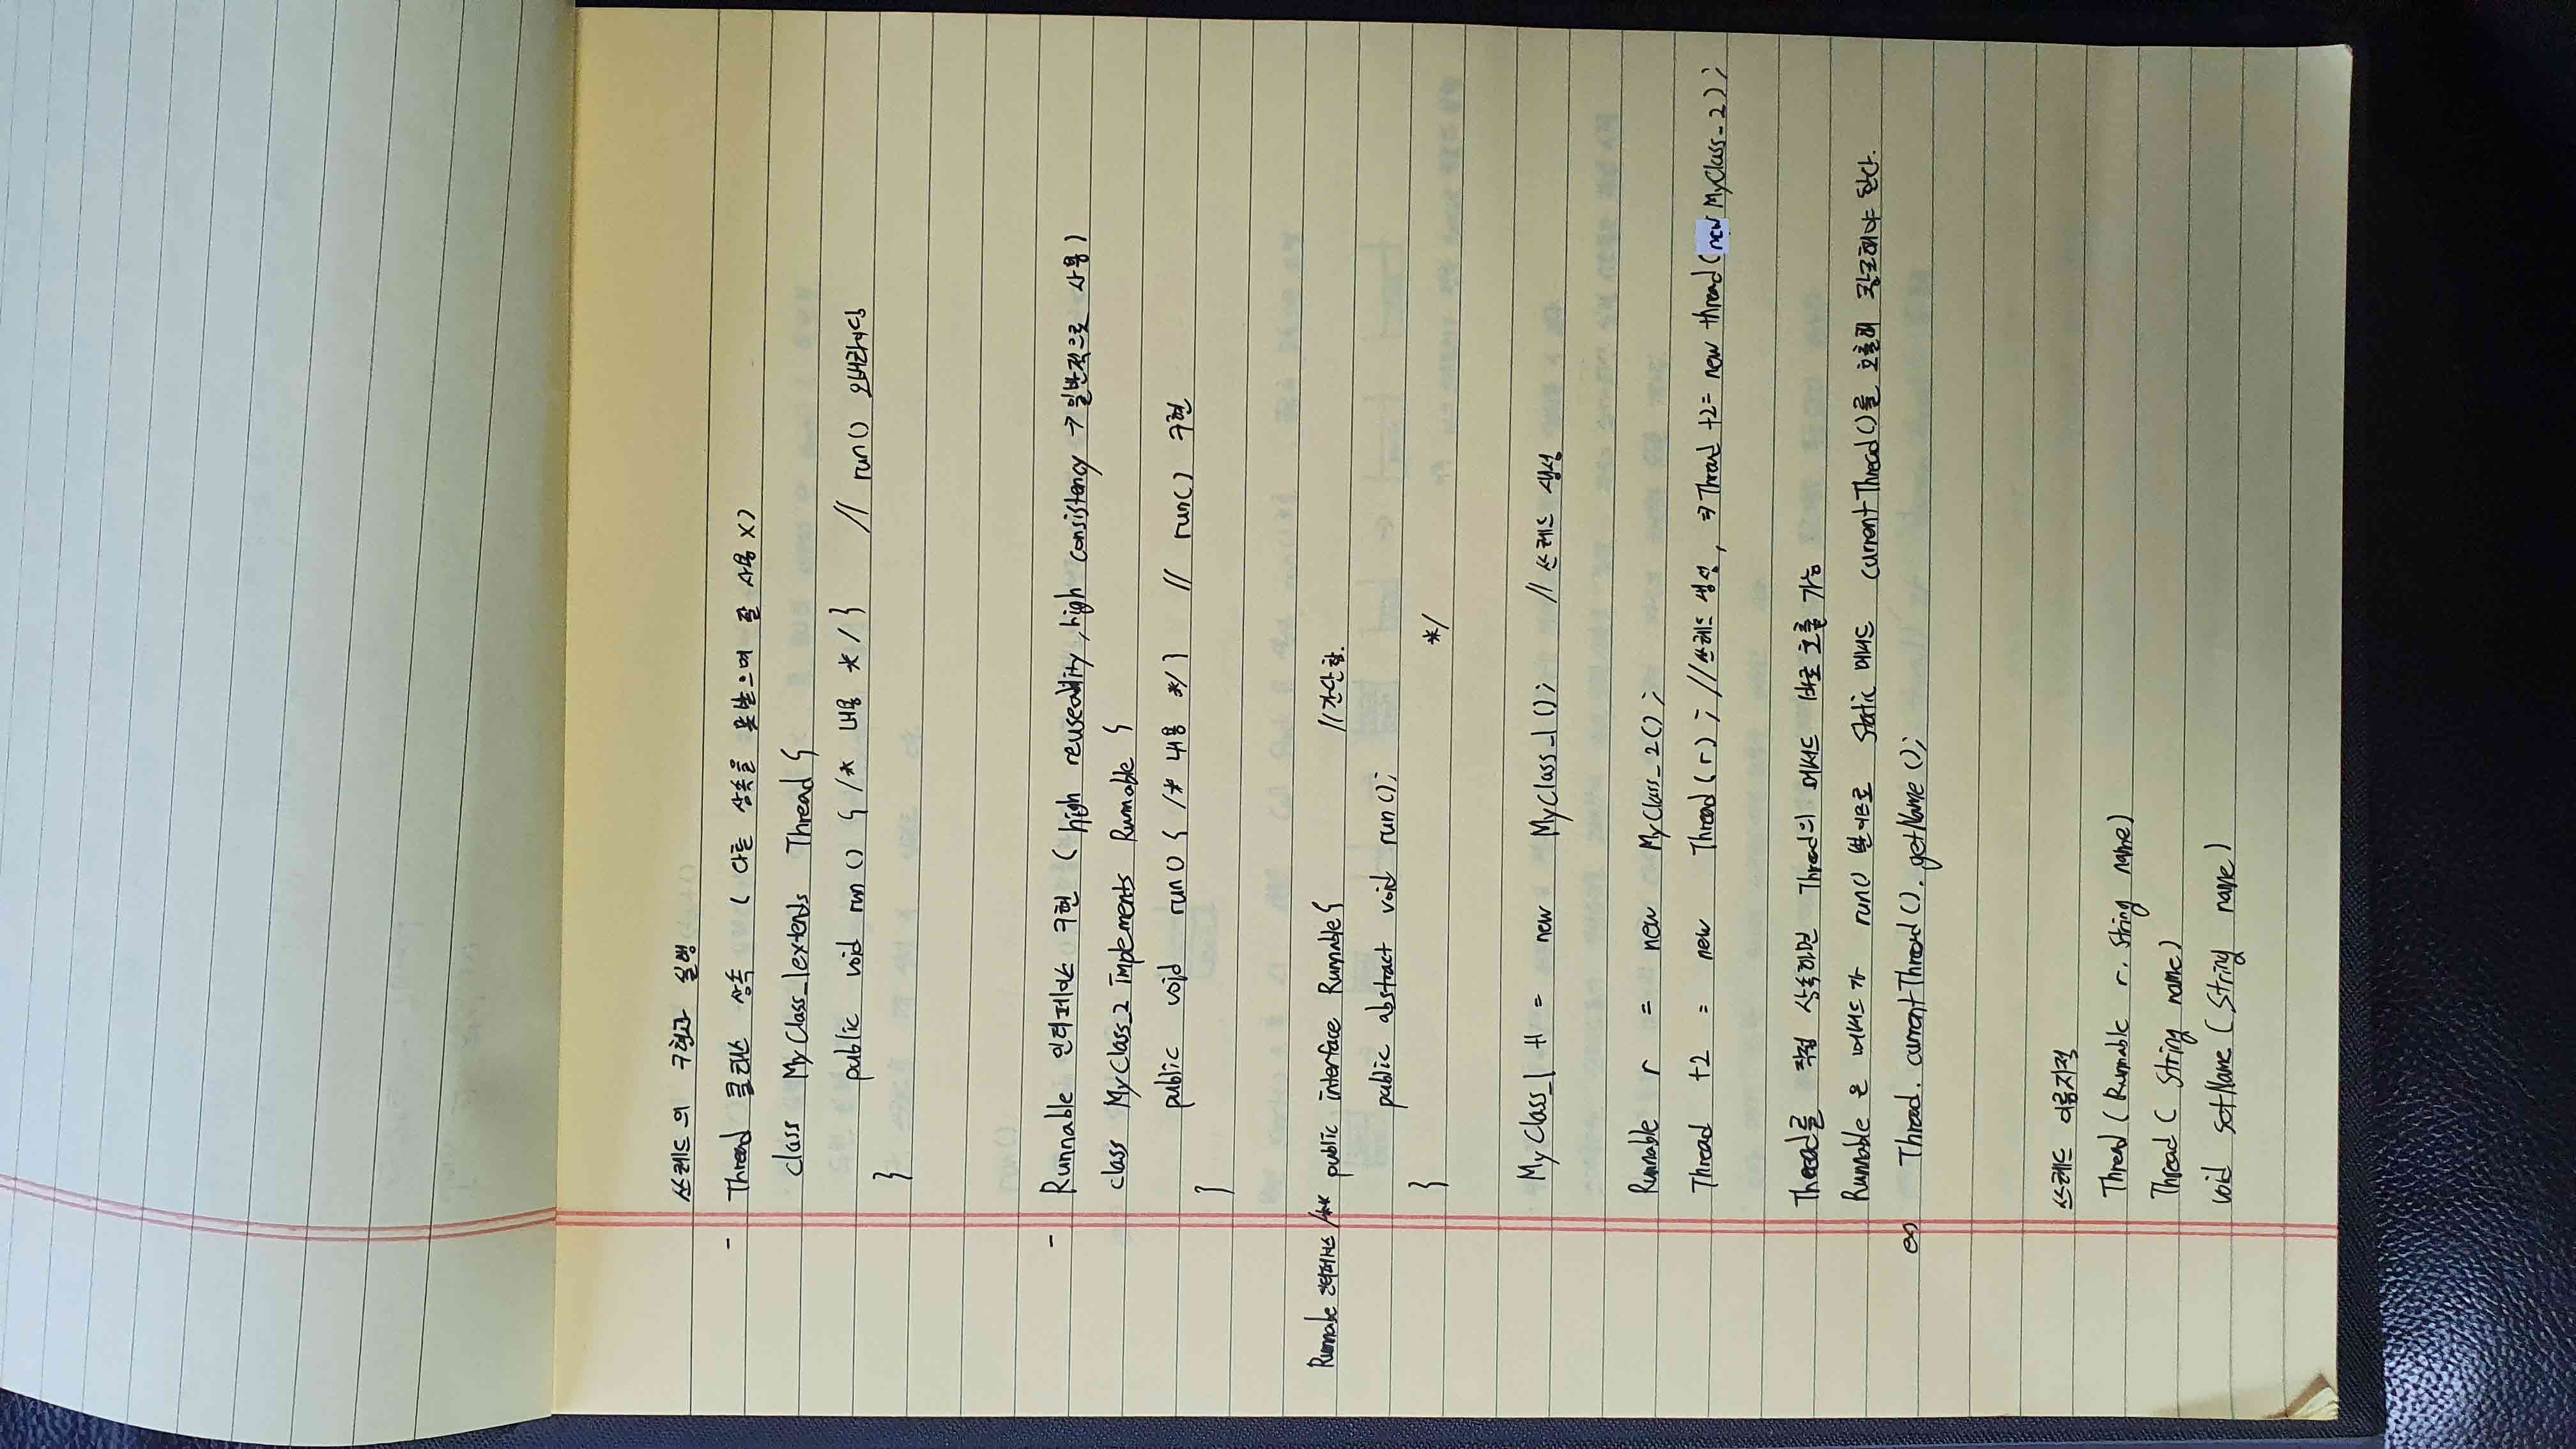 쓰레드의 구현과 실행
- Thread 클래스 상속 ( 다른 상속을 못받으며 잘 사용 X)
class MyClass_1 extends Thread {
public void run () { /* 내용 */ } // run() 오버라이딩
}
- Runnable 인터페이스 구현 (high reuseability, high consistency → 일반적으로 사용)
class MyClass_2 implements Runnable {
public void run() { /* 내용 */ } // run() 구현
}
Runnable 인터페이스 /** public interface Runnable { //간단함.
public abstract void run();
} */
MyClass_1 t1 = new MyClass_1(); // 쓰레드 생성
Runnable r = new MyClass_2();
Thread t2 = new Thread(r); //쓰레드 생성, ⇒ Thread t2 = new thread(new MyClass_2);
Thread를 직접 상속하면 Thread의 메서드 바로 호출 가능
Runnable 은 메서드가 run() 뿐이므로 static 메서드 currentThread()를 호출해 참조해야 한다.
es) Thread. currentThread(). getName();
쓰레드 이름지정
Thread (Runnable r. String name)
Thread ( String name)
void setName (String name)